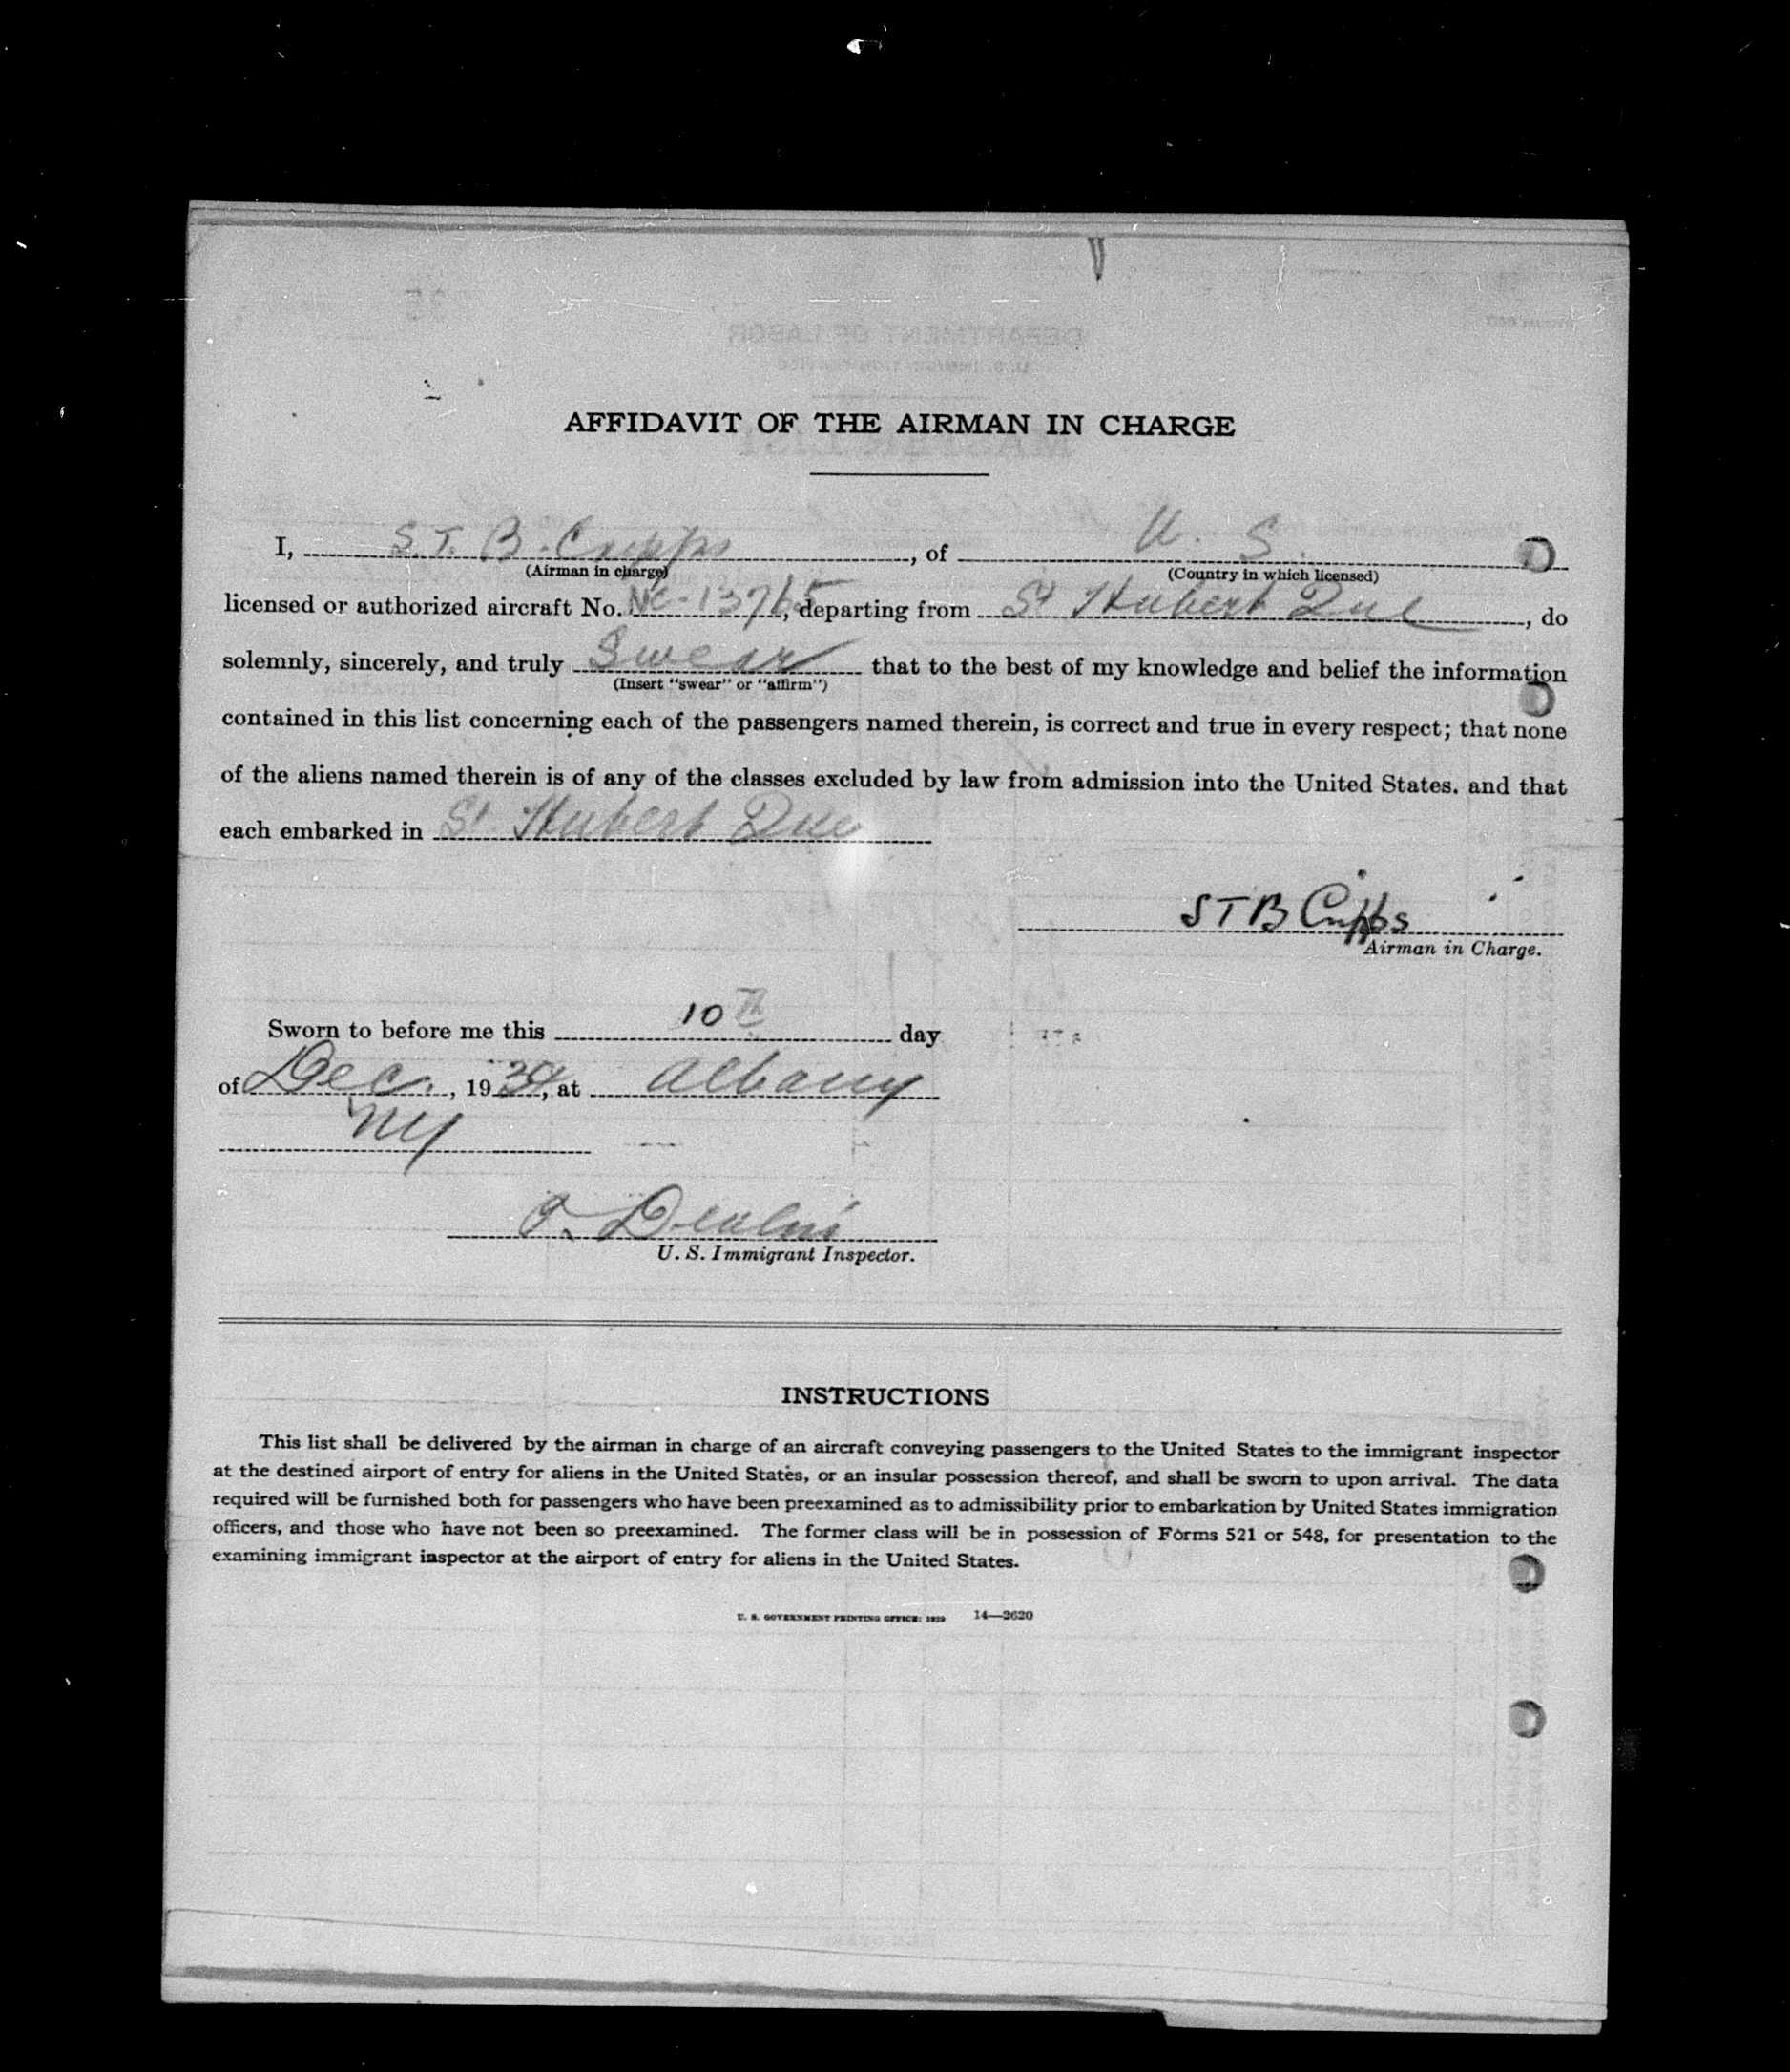 AFFIDAVIT OF THE AIRMAN IN CHARGE
I, S.T. B. Cripps, of U. S.
(Airman in charge) (Country in which licensed)
licensed or authorized aircraft No. NC-13765, departing from St Hubert Que, do
solemnly, sincerely, and truly Swear that to the best of my knowledge and belief the information
(Insert "swear" or "affirm")
contained in this list concerning each of the passengers named therein, is correct and true in every respect; that none
of the aliens named therein is of any of the classes excluded by law from admission into the United States. and that
each embarked in St Hubert Que
STB Cripps
Airman in Charge.
Sworn to before me this 10th day
of Dec., 1934, at Albany
NY
U. S. Immigrant Inspector.
INSTRUCTIONS
This list shall be delivered by the airman in charge of an aircraft conveying passengers to the United States to the immigrant inspector
at the destined airport of entry for aliens in the United States, or an insular possession thereof, and shall be sworn to upon arrival. The data
required will be furnished both for passengers who have been preexamined as to admissibility prior to embarkation by United States immigration
officers, and those who have not been so preexamined. The former class will be in possession of Forms 521 or 548, for presentation to the
examining immigrant inspector at the airport of entry for aliens in the United States.
U. S. GOVERNMENT PRINTING OFFICE: 1929 14—2620